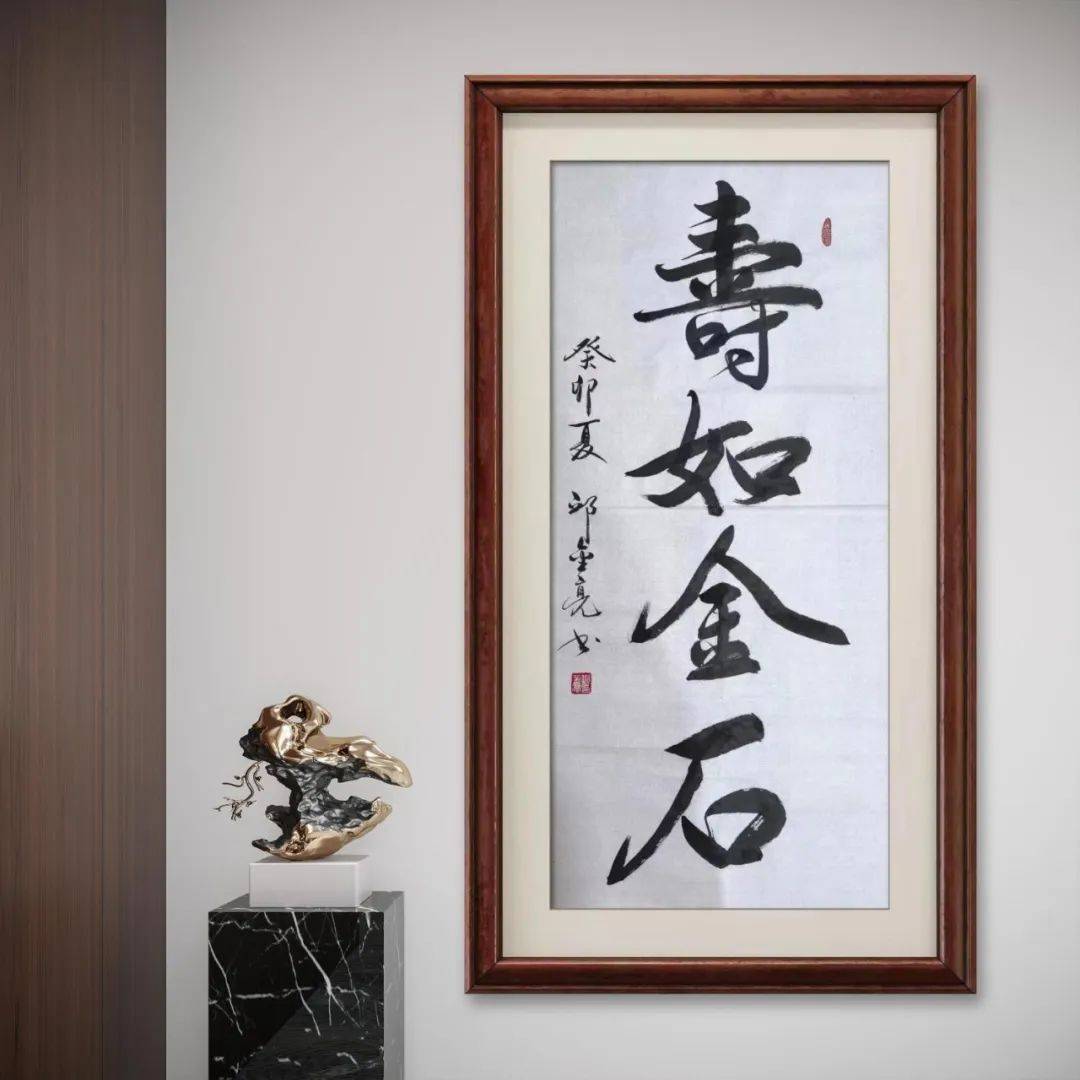 壽如金石
癸卯夏 邱金亮书